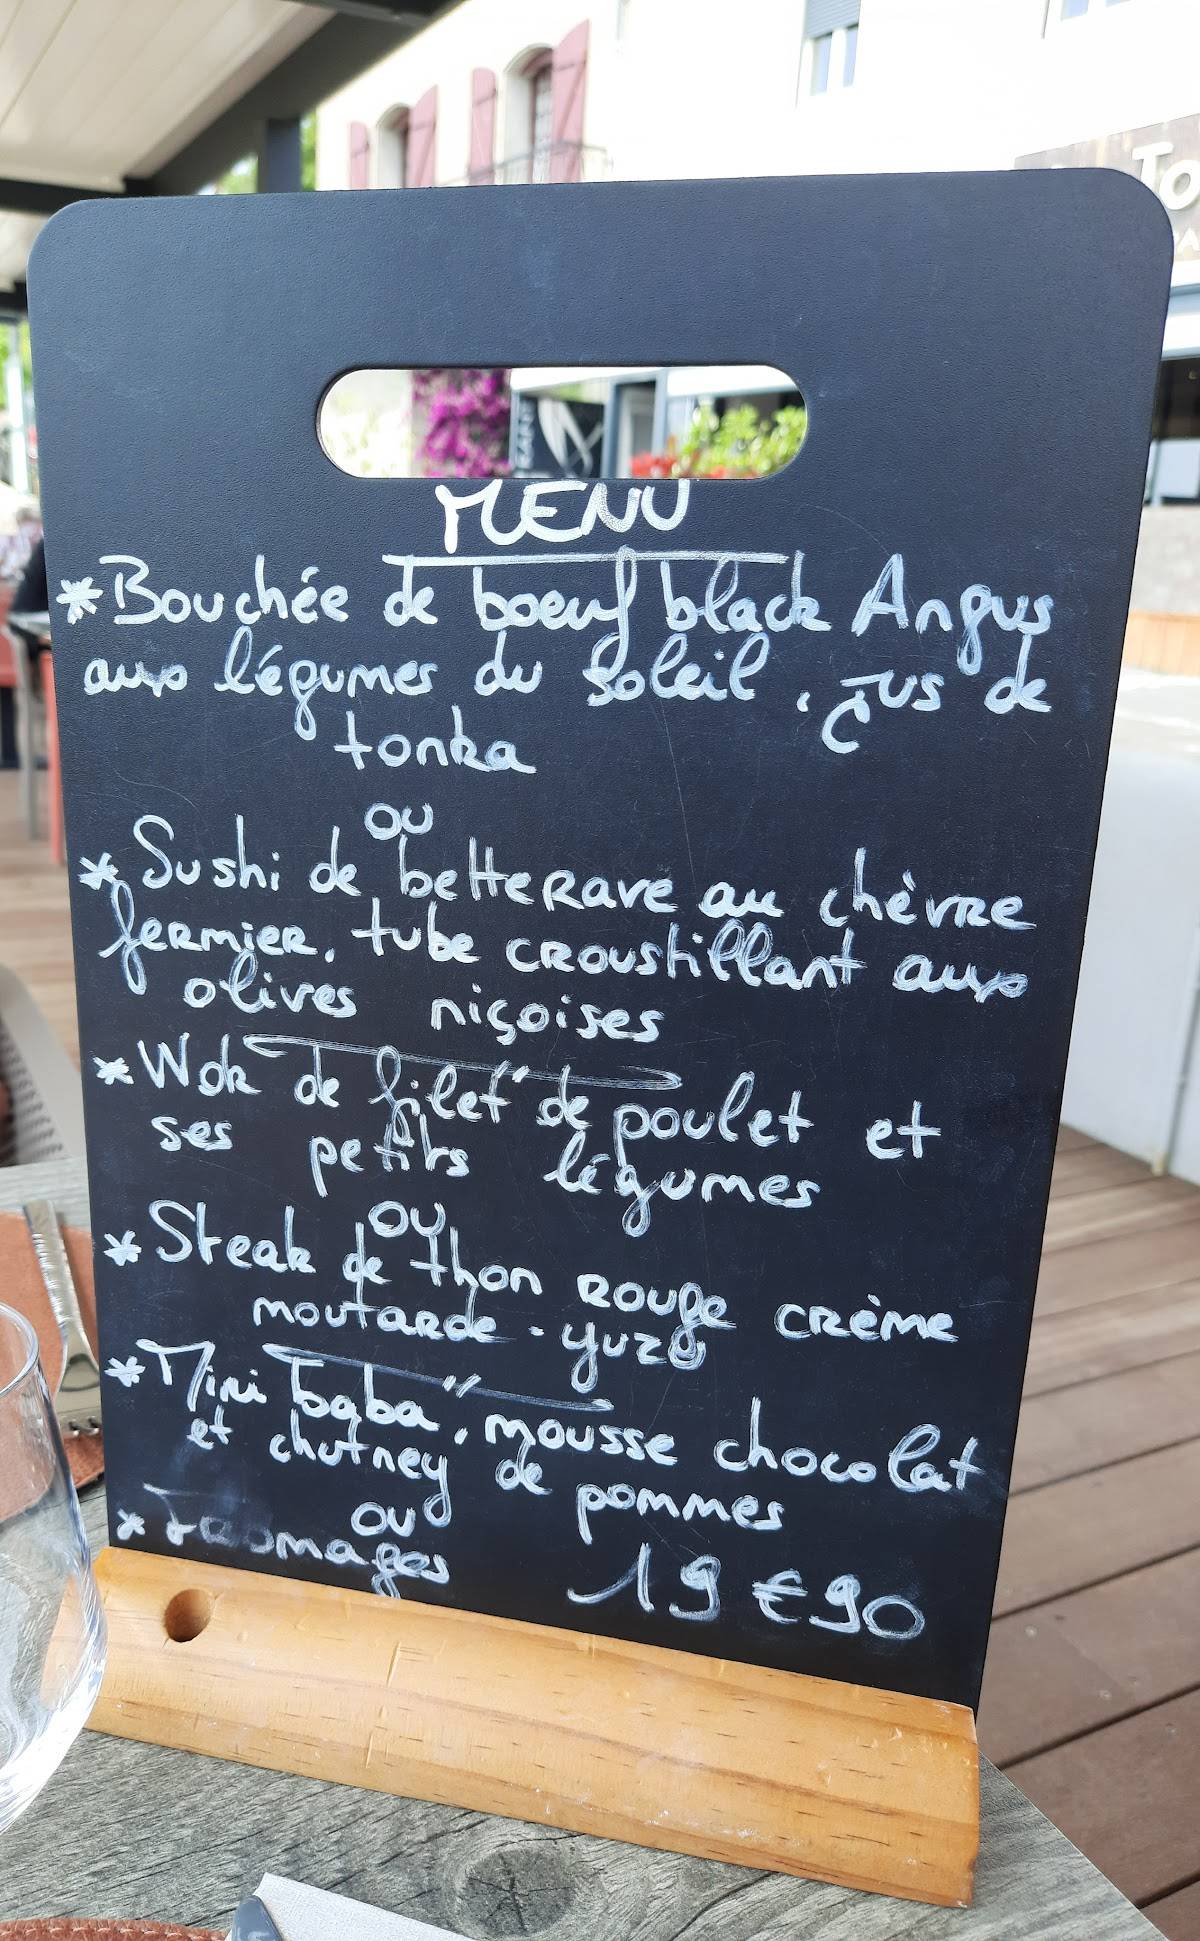 MENU
* Bouchée de boeuf black Angus
aux légumes du soleil, Jus de
tonka
ou
* Sushi de betterave au chèvre
fermier, tube croustillant aux
olives niçoises
* Wok de filet de poulet et
ses petits légumes
ou
* Steak de thon rouge crème
moutarde - yuzu
* Mini baba, mousse chocolat
et chutney de pommes
ou
* Fromages 19 € 90
To